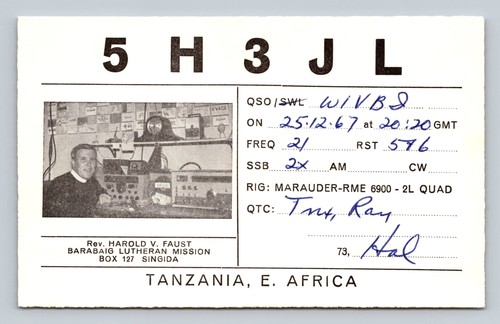 5H3JL
QSO/SWL W1VB
ON 25.12.67 at 20:20 GMT
FREQ 21 RST
SSB 2x AM CW
RIG: MARAUDER-RME 6900 - 2L QUAD
QTC: Tnx, Ray
73, Hal
Rev. HAROLD V. FAUST
BARABAIG LUTHERAN MISSION
BOX 127 SINGIDA
TANZANIA, E. AFRICA